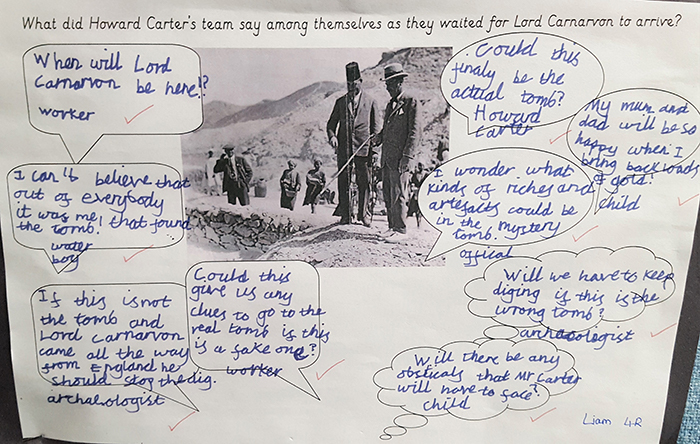 What did Howard Carter's team say among themselves as they waited for Lord Carnarvon to arrive?
When will Lord
Carnarvon be here!?
worker
I can't believe that
out of everybody
it was me! that found
the tomb!
water
boy
If this is not
the tomb and
Lord Carnarvon
came all the way
from England he
should stop the dig.
archaeologist
Could this
give us any
clues to go to the
real tomb if this
is a fake one?
worker
Could this
finaly be the
actual tomb?
Howard
Carter
My mum and
dad will be so
happy when I
bring back loads
of gold!
child
I wonder what
kinds of riches and
artefacts could be
in the mystery
tomb.
offical
Will we have to keep
diging if this is the
wrong tomb?
archaeologist
Will there be any
obsticals that Mr Carter
will have to face?
child
Liam 4R